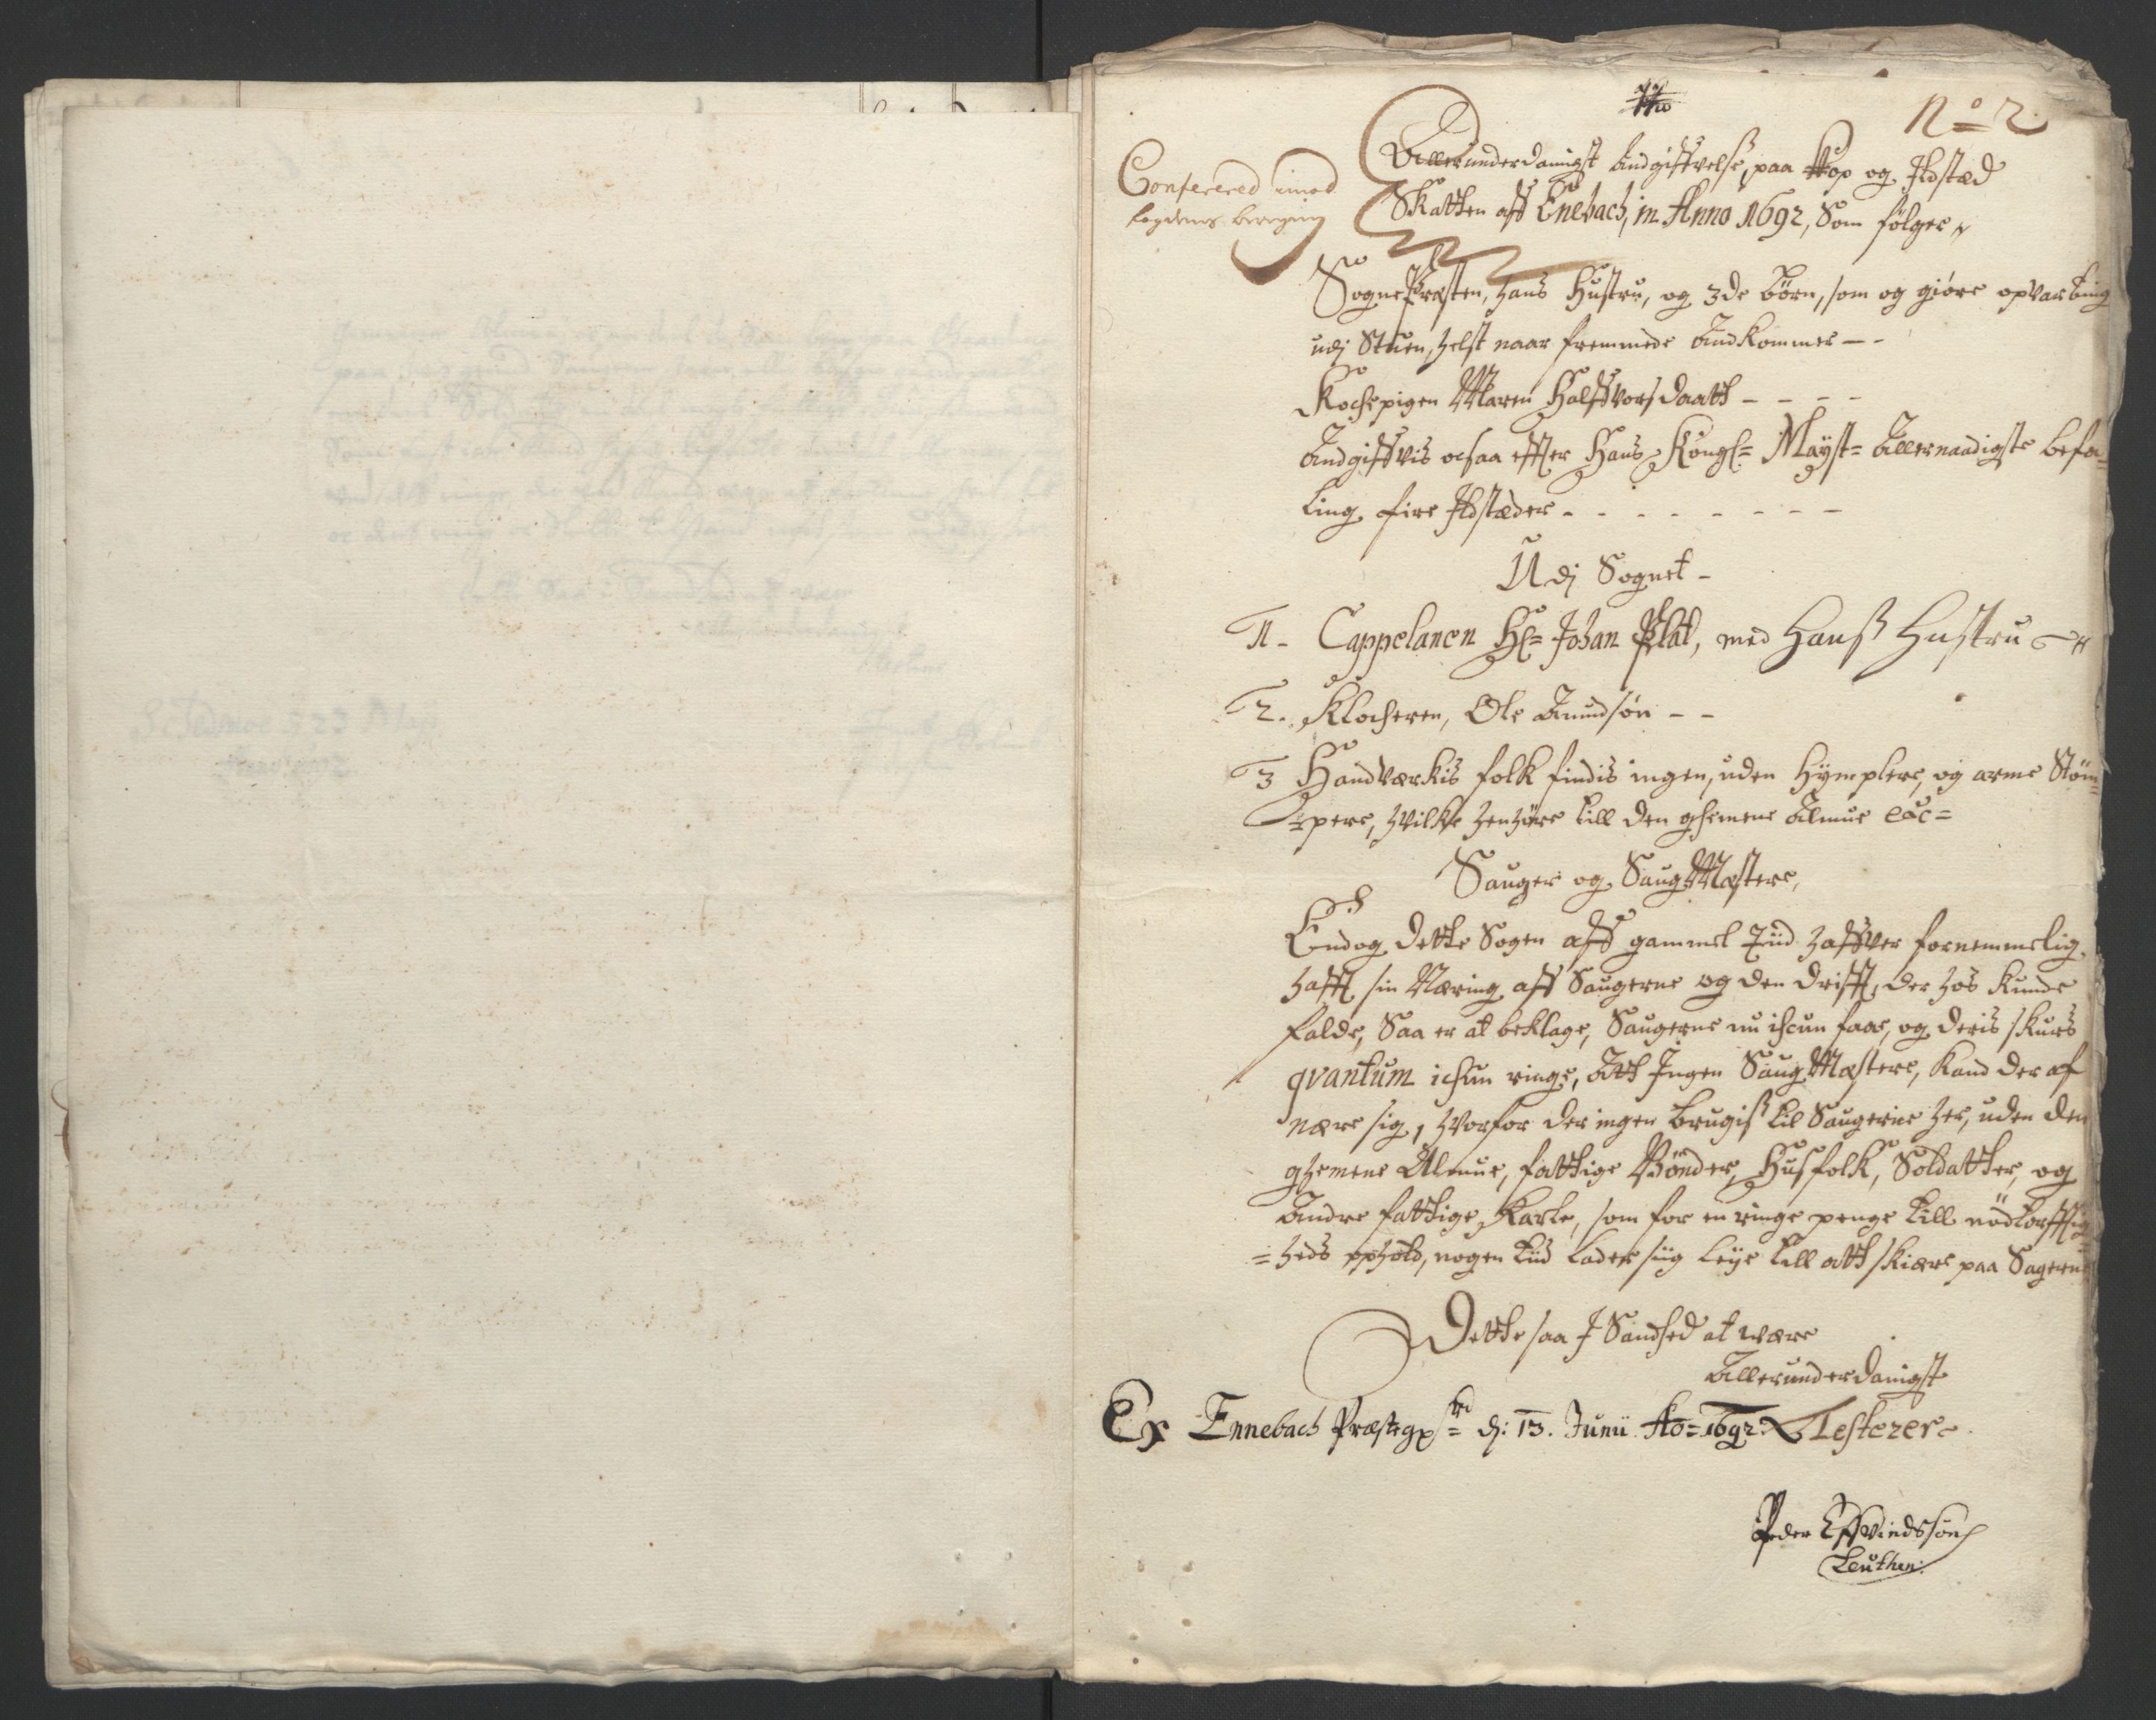 No 2
Conferered imod
fogdens
Allerunderdanigst Andgiffvelse, paa Kop og Ildstæd
Skatten aff Enebach, in Anno 1692, Som følger
SognePræsten, hans Hustru, og 3de börn, som og giöre opvarting
udj Stuen, helst naar fremmede Andkommer --
Kochepigen Maren Halffvorsdaatt - - - -
Andgiffvis ochsaa effter Hans Kongl= Mayst= Allernaadigste befa=
ling fire Ildstæder - - - - - - - -
Udj Sognet -
1 - Cappelanen Hr= Johan Plat, med Hanß Hustru
2. Klocheren, Ole Amundsön - -
3 Handværkis folk findis ingen, uden Hÿmplere, og arme Stöm=
=pere, hvilke henhöre till den gehmene Almue etc=
Sauger og SaugMestere,
Endog dette Sogen aff gammel Tiid haffver fornemmelig
hafft sin Næring aff Saugerne og den drifft, der hos kunde
falde, Saa er at beklage, Saugerne nu ichun faae, og deris skurs
qvantum ichun ringe, Att Ingen SaugMestere, kand der af
nære sig, hvorfor der ingen brugis til Saugerne her, uden den
gehmene Almue, fattige Bönder, Husfolk, Soldatter, og
Andre fattige Karle, som for en ringe penge till nödtörfftig=
=heds ophold, nogen tiid lader siig leye till att skiære paa Sagerne
Dette saa I Sandhed at være
Allerunderdanigst
Ex Ennebach Præstegrd= d: 13. Junii Ao= 1692. Testerer
Peder Effvindssön
Leuthen.